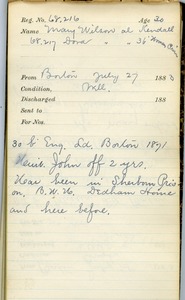 Reg. No. 68,216 Age 30
Name Mary Wilson al Kendall
68,217 Dora " 36
From Boston July 27 188
Condition, Well.
Discharged 188
Sent to
For Nos.
30 b Eng. Ld. Boston 1871
Husb. John off 2 yrs.
Has been in Sherborn Pris-
on, B. W. H. Dedham Home
and here before.